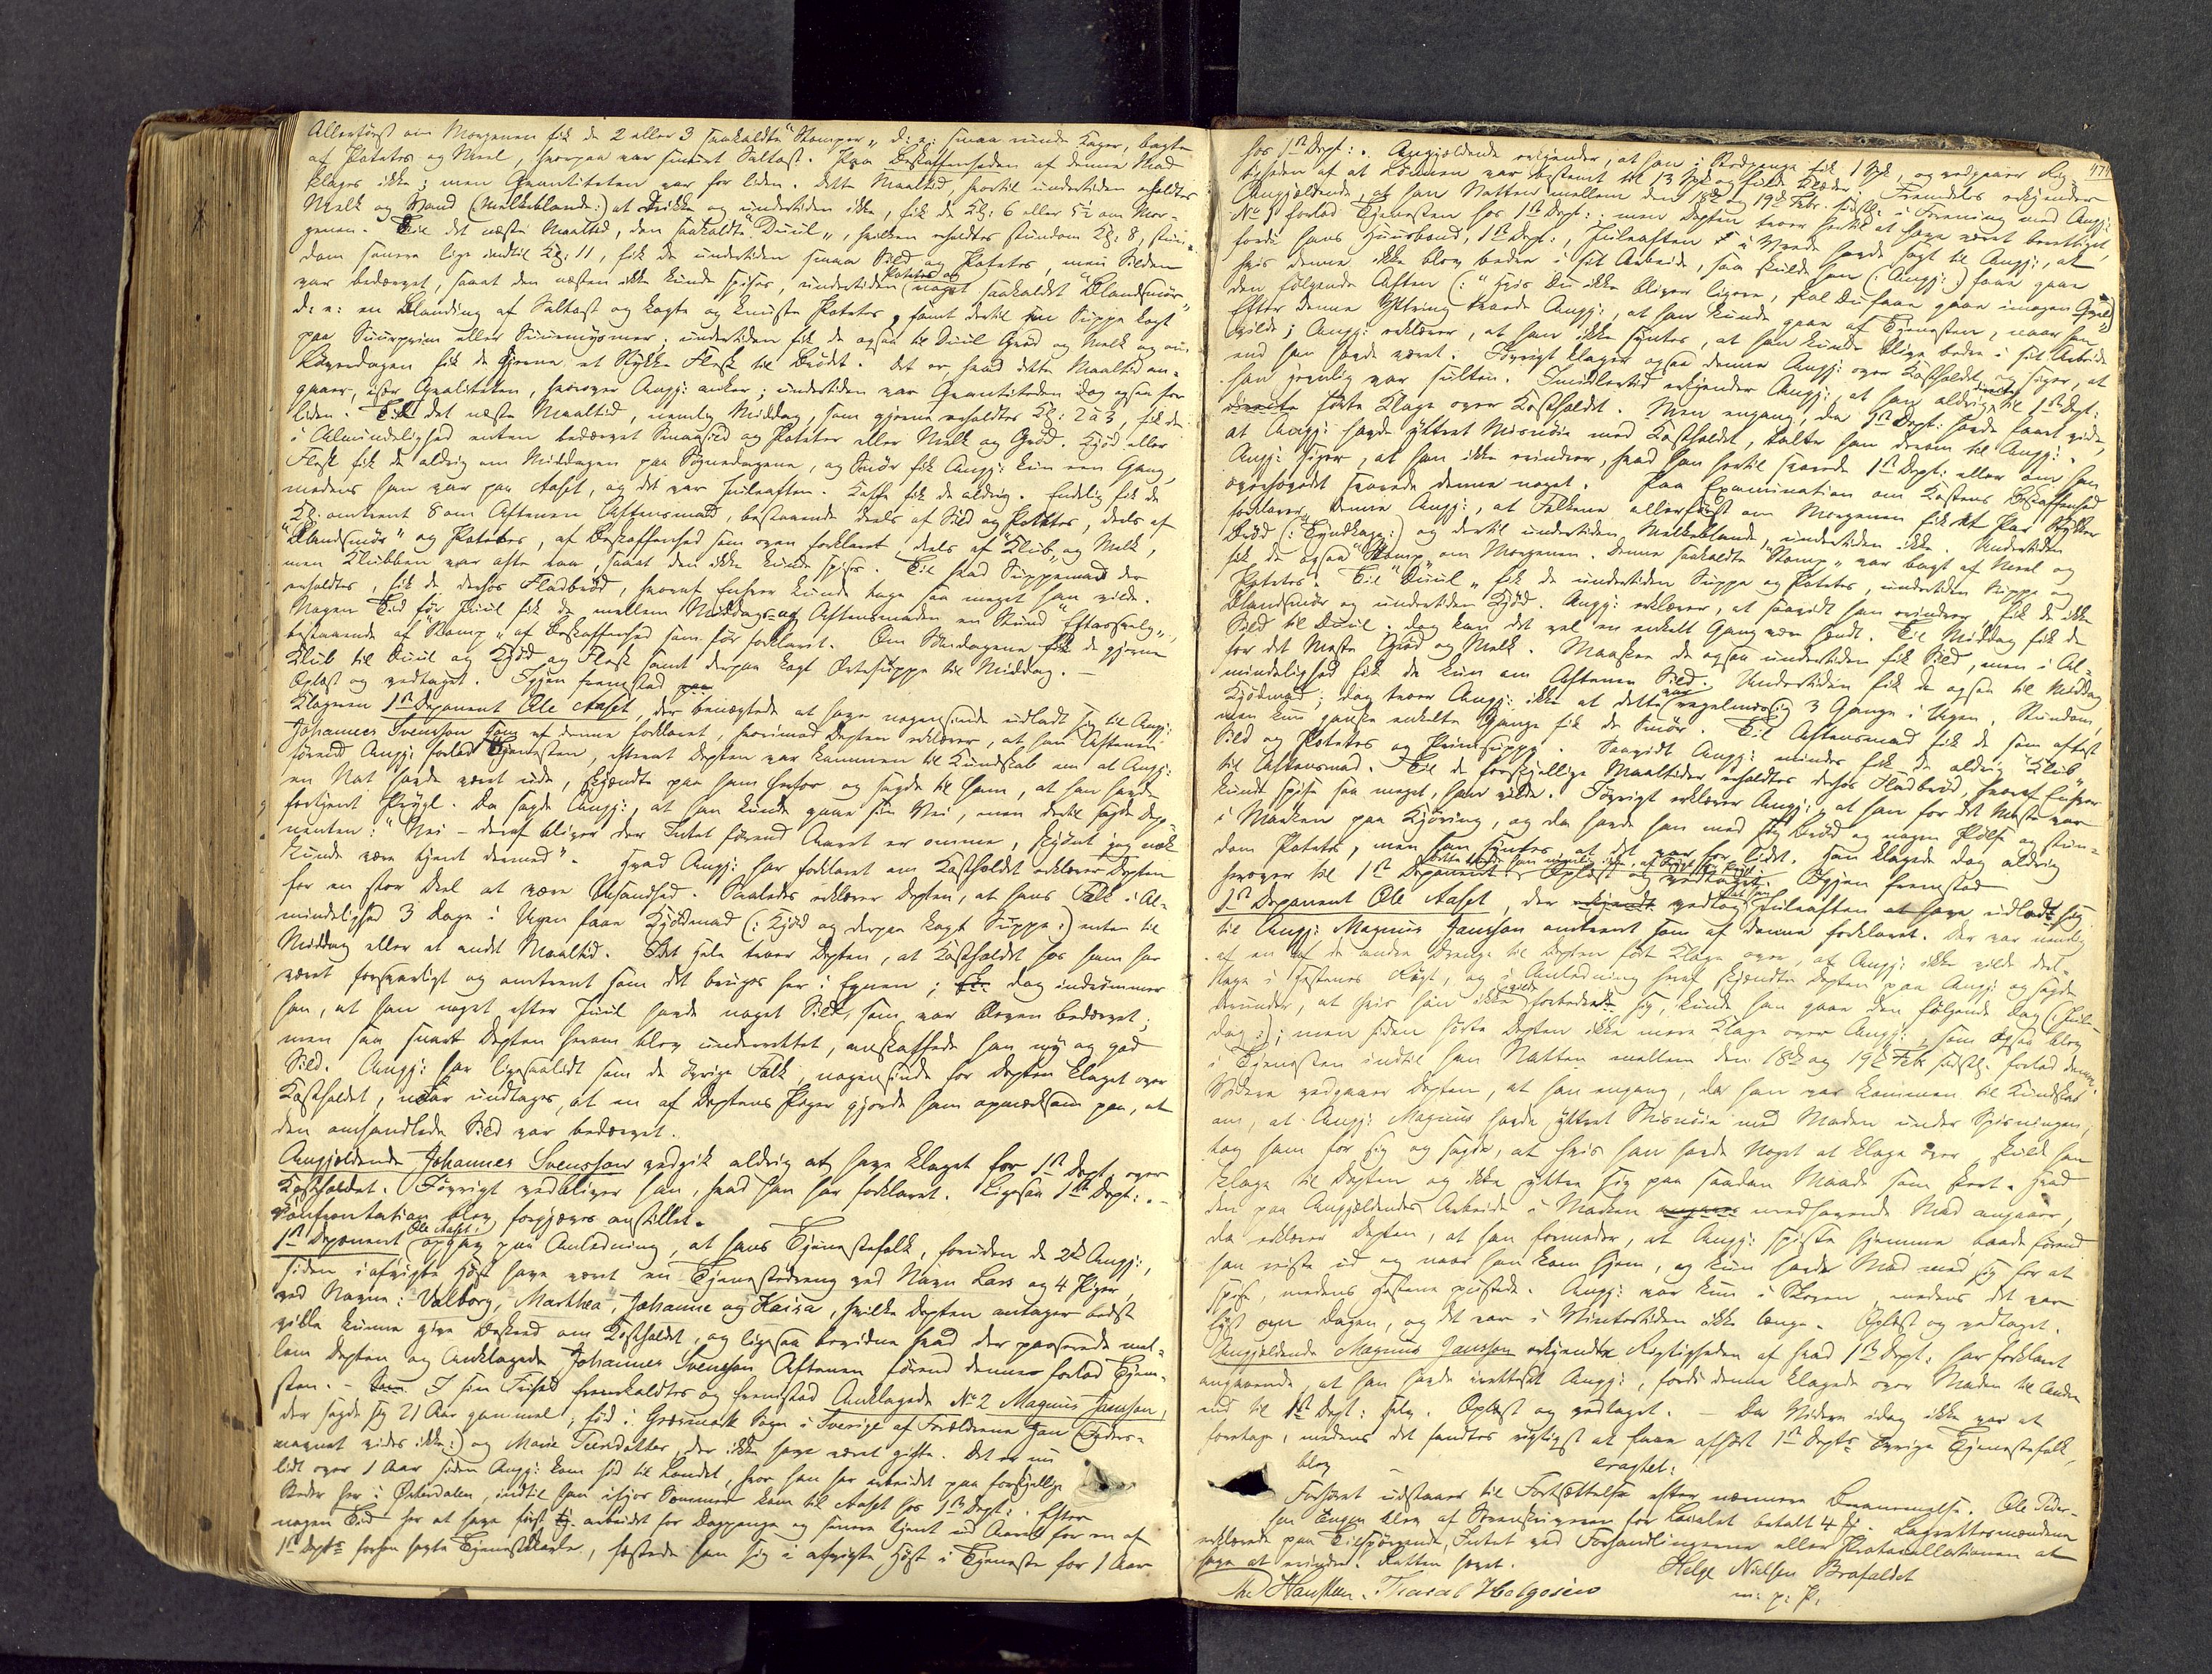 Allerførst om Morgenen fik de 2 eller 3 saakaldte "Stomper" d: e: smaa runde Kager, bagte
af Potetes og Meel, hvorpaa var smurt Saltost. Paa Beskaffenheden af denne Mad
klages ikke; men Qvantiteten var for liden. Dette Maaltid, hvortil undertiden erholdtes
Melk og Vand (Melkeblande:) at drikke og undertiden ikke, fik de Kl: 6 eller 5½ om Mor-
genen. Til det næste Maaltid, den saakaldte "Duul", hvilken erholdtes stundom Kl: 8, stun-
dom senere lige indtil Kl: 11, fik de undertiden smaa Sild og Potetes, men Silden
var bedærvet, saaat den næsten ikke kunde spises, undertiden (Potetes og noget saakaldet "Blandsmør"
d: e: en Blanding af Saltost og kogte og knuste Potetes, samt dertil en Suppe kogt
paa Suurprim eller ; undertiden fik de ogsaa til Duul Grød og Melk og om
Løverdagen fik de gjerne et Stykke Flesk til Brødt. Det er, hvad dette Maaltid an-
gaaer, især Qvaliteten, hvorover Angj: anker; undertiden var Qvantiteten dog ogsaa for
liden. Til det næste Maaltid, nemlig Middag, som gjerne erholdtes Kl: 2 à 3, fik de
i Almindelighed enten bedærvet Smaasild og Poteter eller Melk og Grød. Kjød eller
Flesk fik de aldrig om Middagen paa Søgnedagene, og Smør fik Angj: kun een Gang,
medens han var paa Aaset, og det var Juleaften. Kaffe fik de aldrig. Endelig fik de
Kl. omtrent 8 om Aftenen Aftensmad, bestaaende deels af Sild og Potetes, deels af
"Blandsmør" og Potetes, af Beskaffenhed som oven forklaret, deels af "Klub" og Melk,
men Klubben var ofte raa, saaat den ikke kunde spises. Til hvad Suppemad der
erholdtes, fik de derhos Fladbrød, hvoraf Enhver kunde tage saa meget han vilde.
Nogen Tid før Juul fik de mellem Middags- og Aftensmaden en Stund "Eftasverg",
bestaaende af "Stomp" af Beskaffenhed som før forklaret. Om Søndagene fik de gjerne
Klub til Duul og Kjød og Flesk samt derpaa kogt Ertesuppe til Middag. —
Oplæst og vedtaget. Igjen fremstod
Klageren 1ste Deponent Ole Aaset, der benægtede at have nogensinde udladt sig til Angj:
Johannes Svensson som af denne forklaret, hvorimod Depten erklærer, at han Aftenen
førend Angj: forlod Tjenesten, efterat Depten var kommen til Kundskab om at Angj:
en Nat havde været ude, skjændte paa ham herfor og sagde til ham, at han havde
fortjent Prygl. Da sagde Angj:, at han kunde gaae sin Vei, men dertil sagde Dep-
nenten: "Nei – deraf bliver der Intet førend Aaret er omme, skjønt jeg nok
kunde være tjent dermed". Hvad Angj: har forklaret om Kostholdet erklærer Depten
for en stor Deel at være Usandhed. Saaledes erklærer Depten, at hans Folk i Al-
mindelighed 3 Dage i Ugen faae Kjødmad (: Kjød og derpaa kogt Suppe:) enten til
Middag eller et andet Maaltid. I det Hele troer Depten, at Kostholdet hos ham har
været forsvarligt og omtrent som det bruges her i Egnen; dog indrømmer
han, at han noget efter Juul havde noget Sild, som var bleven bedærvet;
men saa snart Depten herom blev underrettet, anskaffede han ny og god
Sild. Angj: har ligesaalidt som de øvrige Folk nogensinde for Depten klaget over
Kostholdet, naar undtages, at en af Deptens Piger gjorde ham opmærksom paa, at
den omhandlede Sild var bedærvet.
Angjeldende Johannes Svensson vedgik aldrig at have klaget for 1ste Dept over
Kostholdet. Iøvrigt vedbliver han, hvad han har forklaret. Ligesaa 1ste Dept: —
Confrontation blev forgjæves anstillet.
1ste Deponent (Ole Aaset) opgav paa Anledning, at hans Tjenestefolk, foruden de 2de Angj:,
siden i afvigte Høst have været en Tjenestedreng ved Navn Lars og 4 Piger,
ved Navne: Valborg, Marthea, Johanne og Kaisa, hvilke Depten antager bedst
ville kunne give Besked om Kostholdet, og ligesaa bevidne hvad der passerede mel-
lem Depten og Anklagede Johannes Svensson Aftenen førend denne forlod Tjene-
sten. — I sin Frihed fremkaldtes og fremstod Anklagede No 2 Magnus Jansson,
der sagde sig 21 Aar gammel, født i Græsmark Sogn i Sverige af Forældrene Jan (Faders-
navnet vides ikke:) og Maria , der ikke have været gifte. Det er nu
lidt over 1 Aar siden Angj: kom hid til Landet, hvor han har arbeidet paa forskjellige
Steder her i Østerdalen, indtil han ifjor Sommer kom til Aaset hos 1ste Dept: . Efter
nogen Tid her at have først arbeidet for Dagpenge og senere tjent ud Aaret for en af
1ste Depts forhen havte Tjenestekarle, fæstede han sig i afvigte Høst i Tjeneste for 1 Aar
471
hos 1ste Dept: . Angjældende erkjender, at han i Fæstepenge fik 1 Spd, og vedgaaer Rig-
tigheden af at Lønnen var bestemt til 13 Spd og fulde Klæder. Fremdeles erkjender
Angjældende, at han Natten mellem den 18de og 19de Febr. sidstl: i Forening med Angj:
No 1 forlod Tjenesten hos 1ste Dept:; men Depten troer hertil at have været berettiget,
fordi hans Huusbond, 1ste Dept:, Juleaften i Vrede havde sagt til Angj:, at
hvis denne ikke blev bedre i sit Arbeide, saa skulde han (Angj:) faae gaae
den følgende Aften (: "Hvis Du ikke bliver ligere, skal Du faae gaae imorgen Qvæld":)
Efter denne Yttring troede Angj:, at han kunde gaae af Tjenesten, naar han
vilde; Angj: erklærer, at han ikke syntes, at han kunde blive bedre i sit Arbeide
end han havde været. Iøvrigt klager ogsaa denne Angj: over Kostholdet og siger, at
han jevnlig var sulten. Imidlertid erkjender Angj:, at han aldrig directe til 1ste Dept:
førte Klage over Kostholdet. Men engang, da 1ste Dept: havde faaet vide,
at Angj: havde yttret Misnøie med Kostholdet, talte han derom til Angj: .
Angj: siger, at han ikke erindrer, hvad han hertil svarede 1ste Dept: eller om han
overhovedet svarede denne noget. Paa Examination om Kostens Beskaffenhed
forklarer denne Angj:, at Folkene allerførst om Morgenen fik et Par Stykker
Brød (: Tyndkage:) og dertil undertiden Melkeblande, undertiden ikke. Undertiden
fik de ogsaa "Stomp" om Morgenen. Denne saakaldte "Stomp" var bagt af Meel og
Potetes. Til "Duul" fik de undertiden Suppe og Potetes, undertiden Suppe og
Blandsmør og undertiden Kjød. Angj: erklærer, at saavidt han erindrer, fik de ikke
Sild til Duul. Dog kan det vel en enkelt Gang være hendt. Til Middag fik de
for det Meste Grød og Melk. Maaskee de ogsaa undertiden fik Sild, men i Al-
mindelighed fik de kun om Aftenen Sild. Undertiden fik de ogsaa til Middag
Kjødmad; dog troer Angj: ikke at dette var regelmæssig 3 Gange i Ugen. Stundom,
men kun ganske enkelte Gange fik de Smør. Til Aftensmad fik de som oftest
Sild og Potetes og Primsuppe. Saavidt Angj: mindes fik de aldrig "Klub"
til Aftensmad. Til de forskjellige Maaltider erholdtes derhos Fladbrød, hvoraf Enhver
kunde spise saa meget, han vilde. Iøvrigt erklærer Angj:, at han for det Meste var
i Marken paa Kjøring, og da havde han med sig Brød og nogen Pølse og stun-
dom Potetes, men han syntes, at det var for lidet. Han klagede dog aldrig
herover til 1ste Deponent. Oplæst og vedtaget. Igjen fremstod
1ste Deponent Ole Aaset, der vedtog Juleaften at have udladt sig
til Angj: Magnus Jansson omtrent som af denne forklaret. Der var nemlig
af en af de andre Drenge til Depten ført Klage over, at Angj: ikke vilde del-
tage i Hestenes Røgt, og i Anledning heraf skjændte Depten paa Angj: og sagde
derunder, at hvis han ikke vilde forbedre sig, kunde han gaae den følgende Dag (: Jule-
dag:); men siden hørte Depten ikke mere Klage over Angj:, som ogsaa blev
i Tjenesten indtil han Natten mellem den 18de og 19de Febr sidstl. forlod denne.
Videre vedgaaer Depten, at han engang, da han var kommen til Kundskab
om, at Angj: Magnus havde yttret Misnøie med Maden under Spisningen,
tog ham for sig og sagde, at hvis han havde Noget at klage over, skulde han
klage til Depten og ikke yttre sig paa saadan Maade som skeet. Hvad
den paa Angjældendes Arbeide i Marken medhavende Mad angaaer,
da erklærer Depten, at han formoder, at Angj: spiste hjemme baade førend
han reiste ud og naar han kom hjem, og kun havde Mad med sig for at
spise, medens Hestene pustede. Angj: var kun i Skoven, medens det var
lyst om Dagen, og det var i Vintertiden ikke længe. Oplæst og vedtaget.
Angjældende Magnus Jansson erkjendte Rigtigheden af hvad 1ste Dept: har forklaret
angaaende, at han havde irettesat Angj:, fordi denne klagede over Maden til Andre
end til 1ste Dept: selv. Oplæst og vedtaget. — Da Videre idag ikke var at
foretage, medens det fandtes rigtigst at faae afhørt 1ste Depts øvrige Tjenestefolk,
blev eragtet:
Forhøret udstaaer til Fortsættelse efter nærmere Berammelse. Ole Peder-
sen Engen blev af Sorenskriveren for Localet betalt 4 . Lagrettesmændene
erklærede paa Tilspørgende, Intet ved Forhandlingerne eller Protocollationen at
have at erindre. Retten hævet.
Helge Nielsen Brofaldet
Hansteen. Helgesen m. p. P.